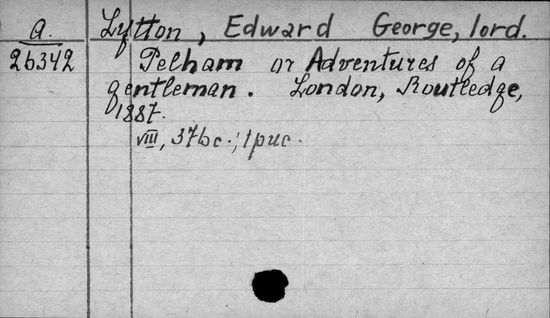 a.
26342
Lytton, Edward George, lord.
Pelham or Adventures of a
gentleman. London, Routledge,
1887.
VIII, 376 c.; 1 рис.